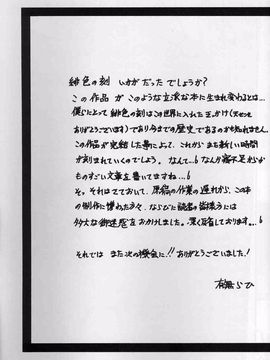 緋色の刻 いかがだったでしょうか?
この作品が このような立派な本に生まれ変わるとは…
僕らにとって 緋色の刻はこの世界に入れた
ありがとうございます)であり今までの歴史であるのかも知れません。
この作品が完結した事によって、これから また新しい時間
が刻まれていくのでしょう。なんて…6 なんか寝不足からか
ものすごい文章を書いてますね…6
そ。それはさておいて、原稿の作業の遅れから、この本
の制作に携わった方々、ならびに読者の皆様方には
多大な御迷惑をおかけしました。深く反省しております。…6
それでは また次の機会に!! ありがとうございました!